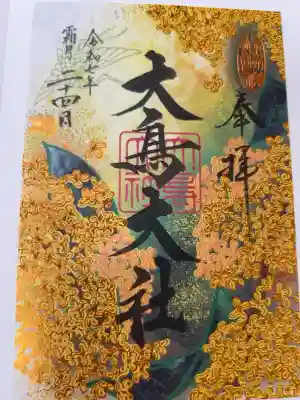 奉拝
大鳥大社
令和七年
霜月二十四日